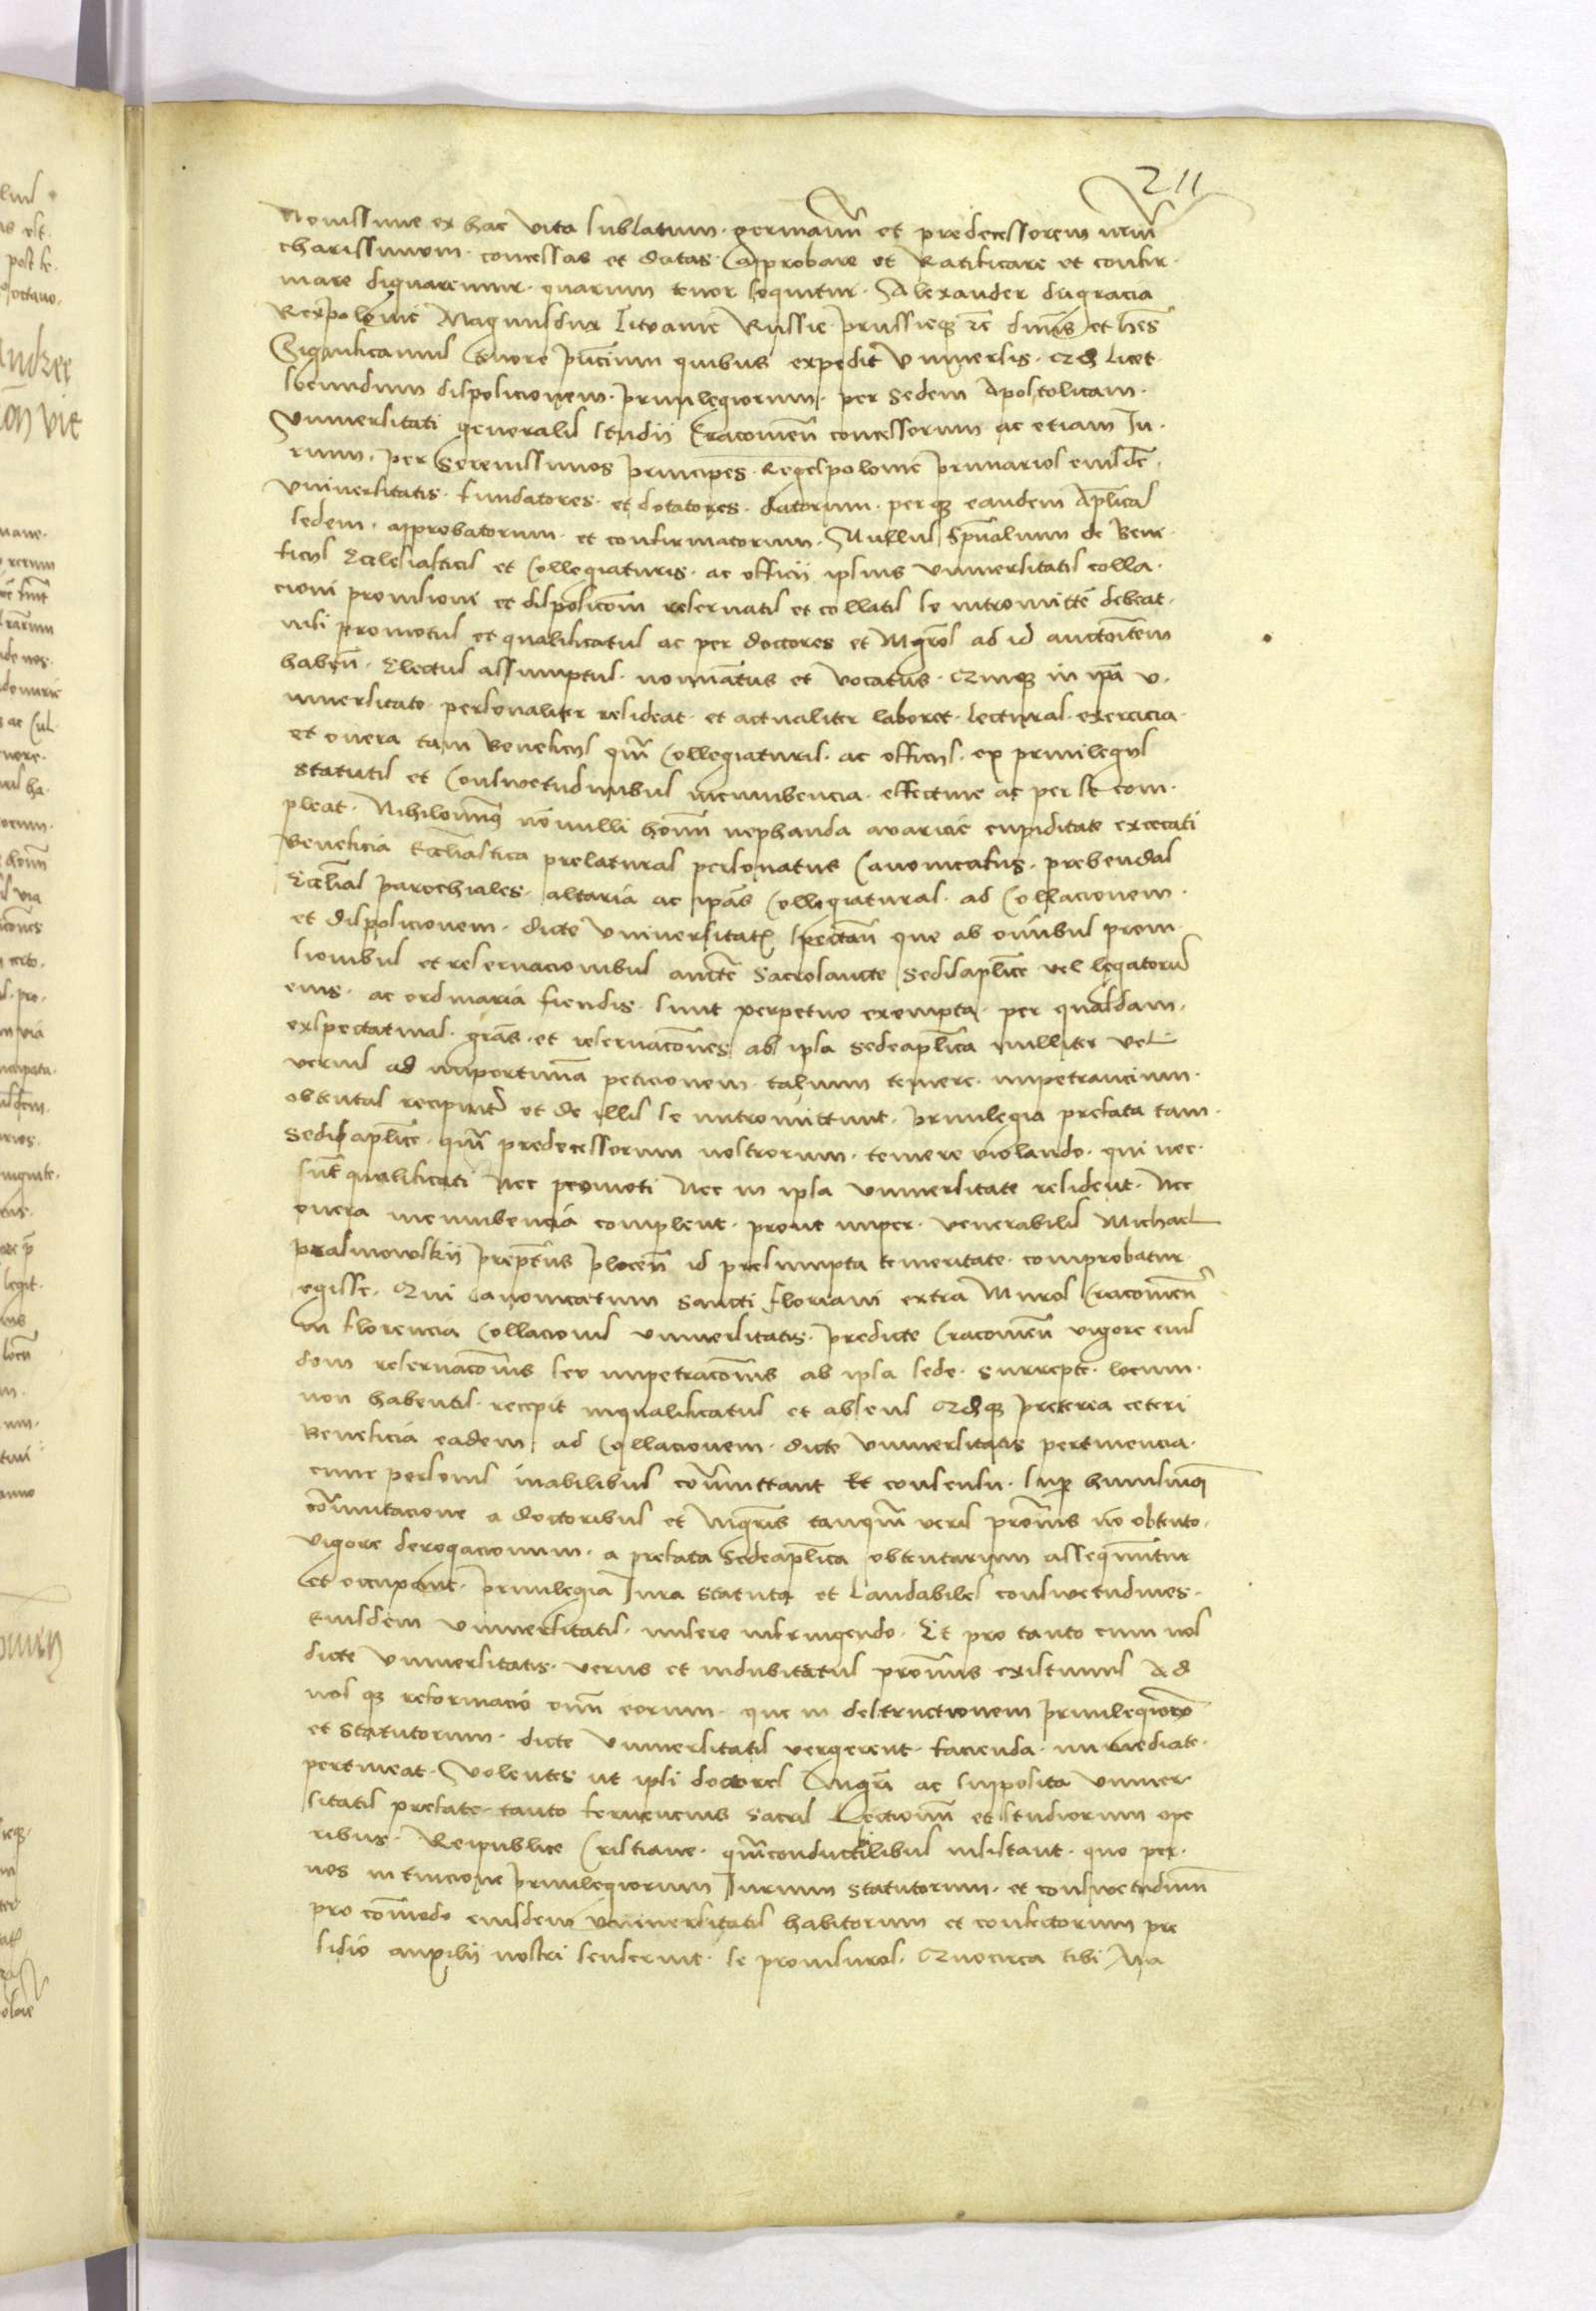 211
Nouissime ex hac vita sublatum germanū et predecessorem nrm̄
charissimum concessas et datas approbare et Ratificare et confir
mare dignaremur quarum tenor sequitur Alexander deigracia
Rexpolonie Magnusdux Litvanie Russie prussieqȝ rc dn̄us et hes
Significamus tenore pn̄cium quibus expedit vniuersis Qd Licet
secundum disposicionem priuilegiorum per Sedem Apostolicam
Vniuersitati generalis studii Cracouien̄ concessorum ac etiam Iu
rium per Serenissimos principes Regespolonie primarios eiusdē
vniuersitatis fundatores et dotatores datorum perqȝ eandem Aplicā
sedem approbatorum et confirmatorum Nullus sp̄ualium de Bene
ficijs Ecclesiasticis et Collegiaturis ac officii ipsius vniuersitatis colla
cioni prouisioni et disposicōm reseruatis et collatis se intromitte debeat
nisi promotus et qualificatus ac per doctores et Mgr̄os ad id auctoritem
haben̄ Electus assumptus nominatus et vocatus Quiqȝ in ipa v
niuersitate personaliter resideat et actualiter laboret lecturas exercicia
et onera tam Beneficijs qm̄ Collegiaturis ac officijs ex priuilegijs
statutis et Consuetudinibus incumbencia effectiue ac per se com
pleat Nihilominus nonnulli homī nephanda auaricie cupiditate excecati
Beneficia Ecclīastica prelaturas personatus Canonicatus prebendas
Ecclīas parochiales altaria ac ipas Collegiaturas ad Collacionem
et disposicionem dicte vniuersitatꝭ spectan̄ que ab omībus proui
sionibus et reseruacionibus aucte Sacrosancte Sedisaplice vel legatorū
eius ac ordinaria fiendis sunt perpetuo exempta per quasdam
exspectatiuas grās et reseruacōnes ab ipsa Sedeaplica nulliter vel
verius ad importunā peticionem talium temere impetrancium
obtentas recipiūt et de illis se intromittunt priuilegia prefata tam
Sedisaplice qm̄ predecessorum nostrorum temere violando qui nec
sūt qualificati Nec promoti Nec in ipsa vniuersitate resident Nec
onera incumbencia complent prout nuper venerabilis Michael
pralmowskij prept̄us plocen̄ id presumpta temeritate comprobatur
egisse Qui Canonicatum Sancti floriani extra Muros Cracouien̄
in florencia Collacionis vniuersitatis predicte Cracouien̄ vigore eius
dem reseruacōnis seu impetracōnis ab ipsa sede surrepte locum
non habentis recepit inqualificatus et absens Qdqȝ preterea ceteri
Beneficia eadem ad Collacionem dicte vniuersitatis pertinencia
cum personis inabilibus com̄ittant Et consensu sup huiusmōi
com̄utacione a doctoribus et mgrīs tanqm̄ veris prom̄is nō obtento
vigore derogacionum a prefata Sedeaplica obtentarum assequuntur
et occupant priuilegia Iura Statuta et Laudabiles consuetudines
Eiusdem vniuersitatis misere infringendo Et pro tanto cum nos
dicte vniuersitatis verus et indubitatus prom̄us existimus Ad
nos qȝ reformacio omī eorum que in destructionem priuilegiorū
et Statutorum dicte vniuersitatis vergerent facienda immediate
pertineat Volentes ut ipsi doctores Mgrī ac supposita vniuer
sitatis prefate tanto feruencius sacris Lectionū et studiorum ope
ribus Reipublice Cristiane qm̄conductibilibus insistant quo per
nos in tuicione priuilegiorum Iurium statutorum et consuetudinū
pro com̄odo eiusdem vniuersitatis habitorum et confectorum pre
sidio auxilij nostri senserint se prouisuros Quocirca tibi Ma